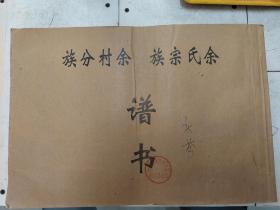 余氏宗族 余村分族
谱
书